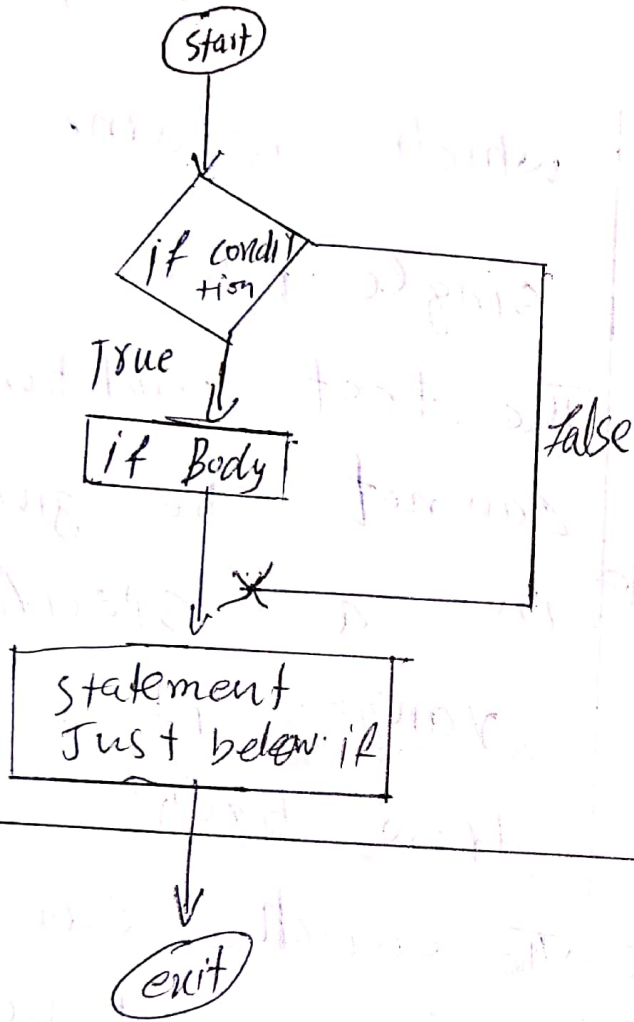 Start
if condi
tion
True
False
if Body
statement
Just below if
exit